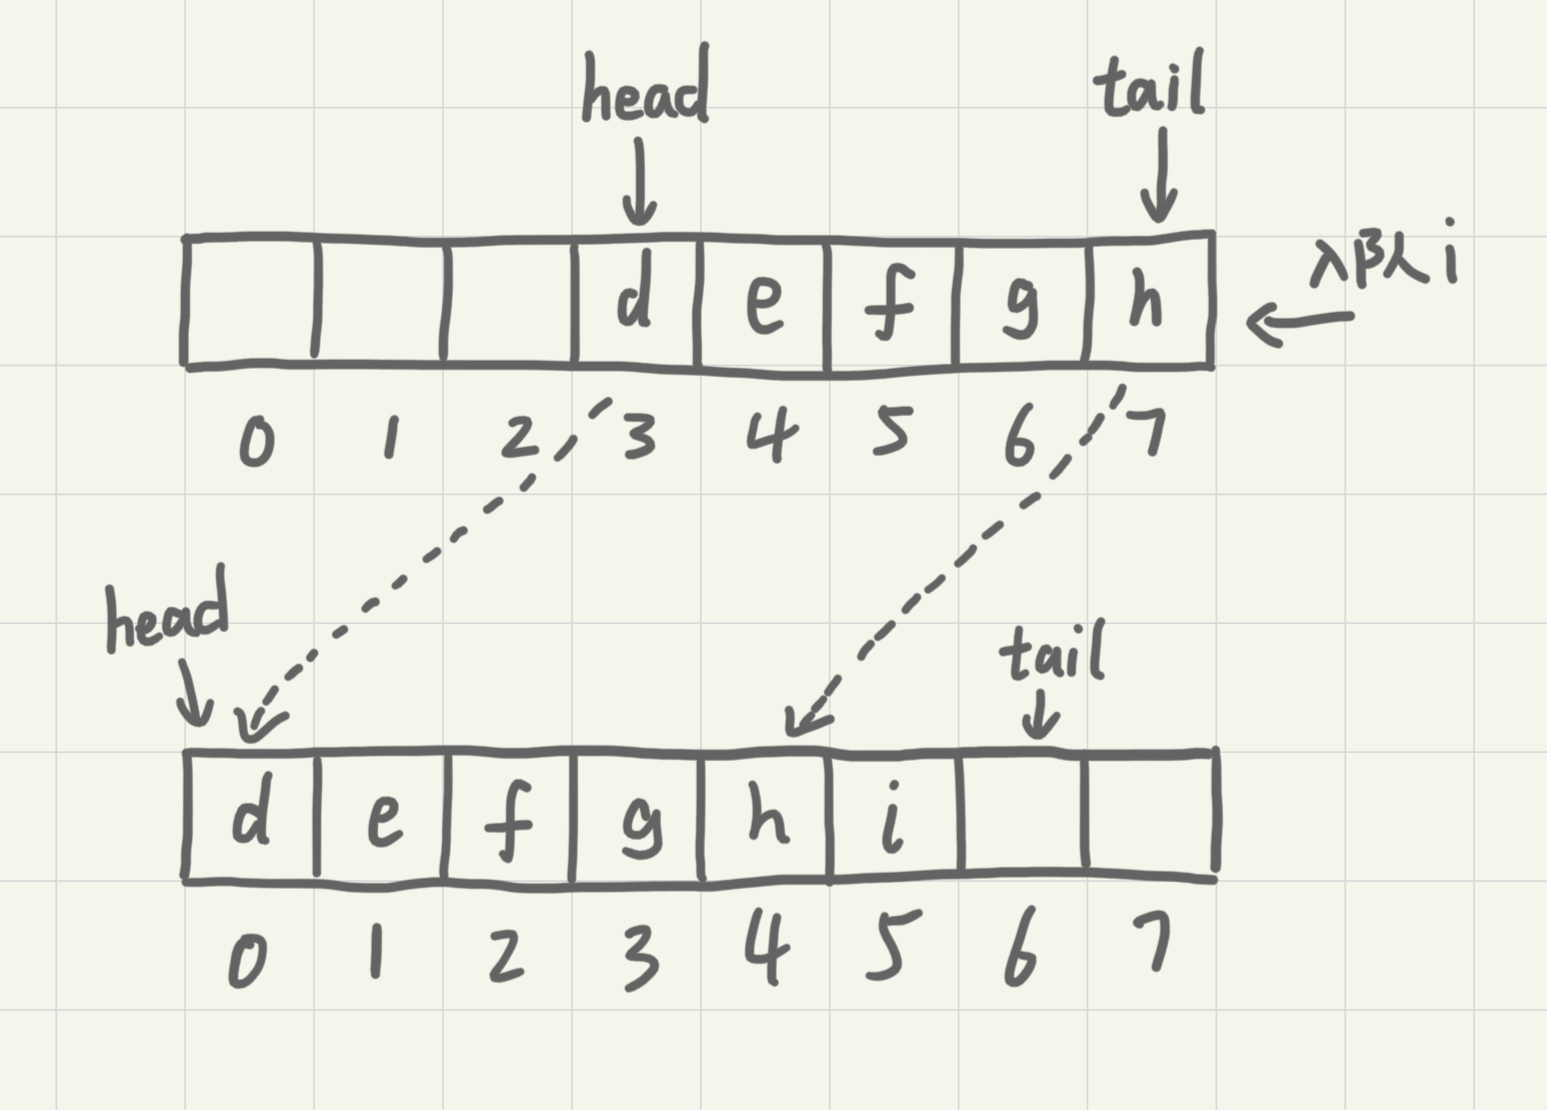 head tail
d e f g h 入队 i
0 1 2 3 4 5 6 7
head tail
d e f g h i
0 1 2 3 4 5 6 7